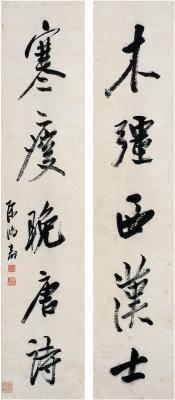 木彊西漢士
寒瘦晚唐詩
陳鴻壽